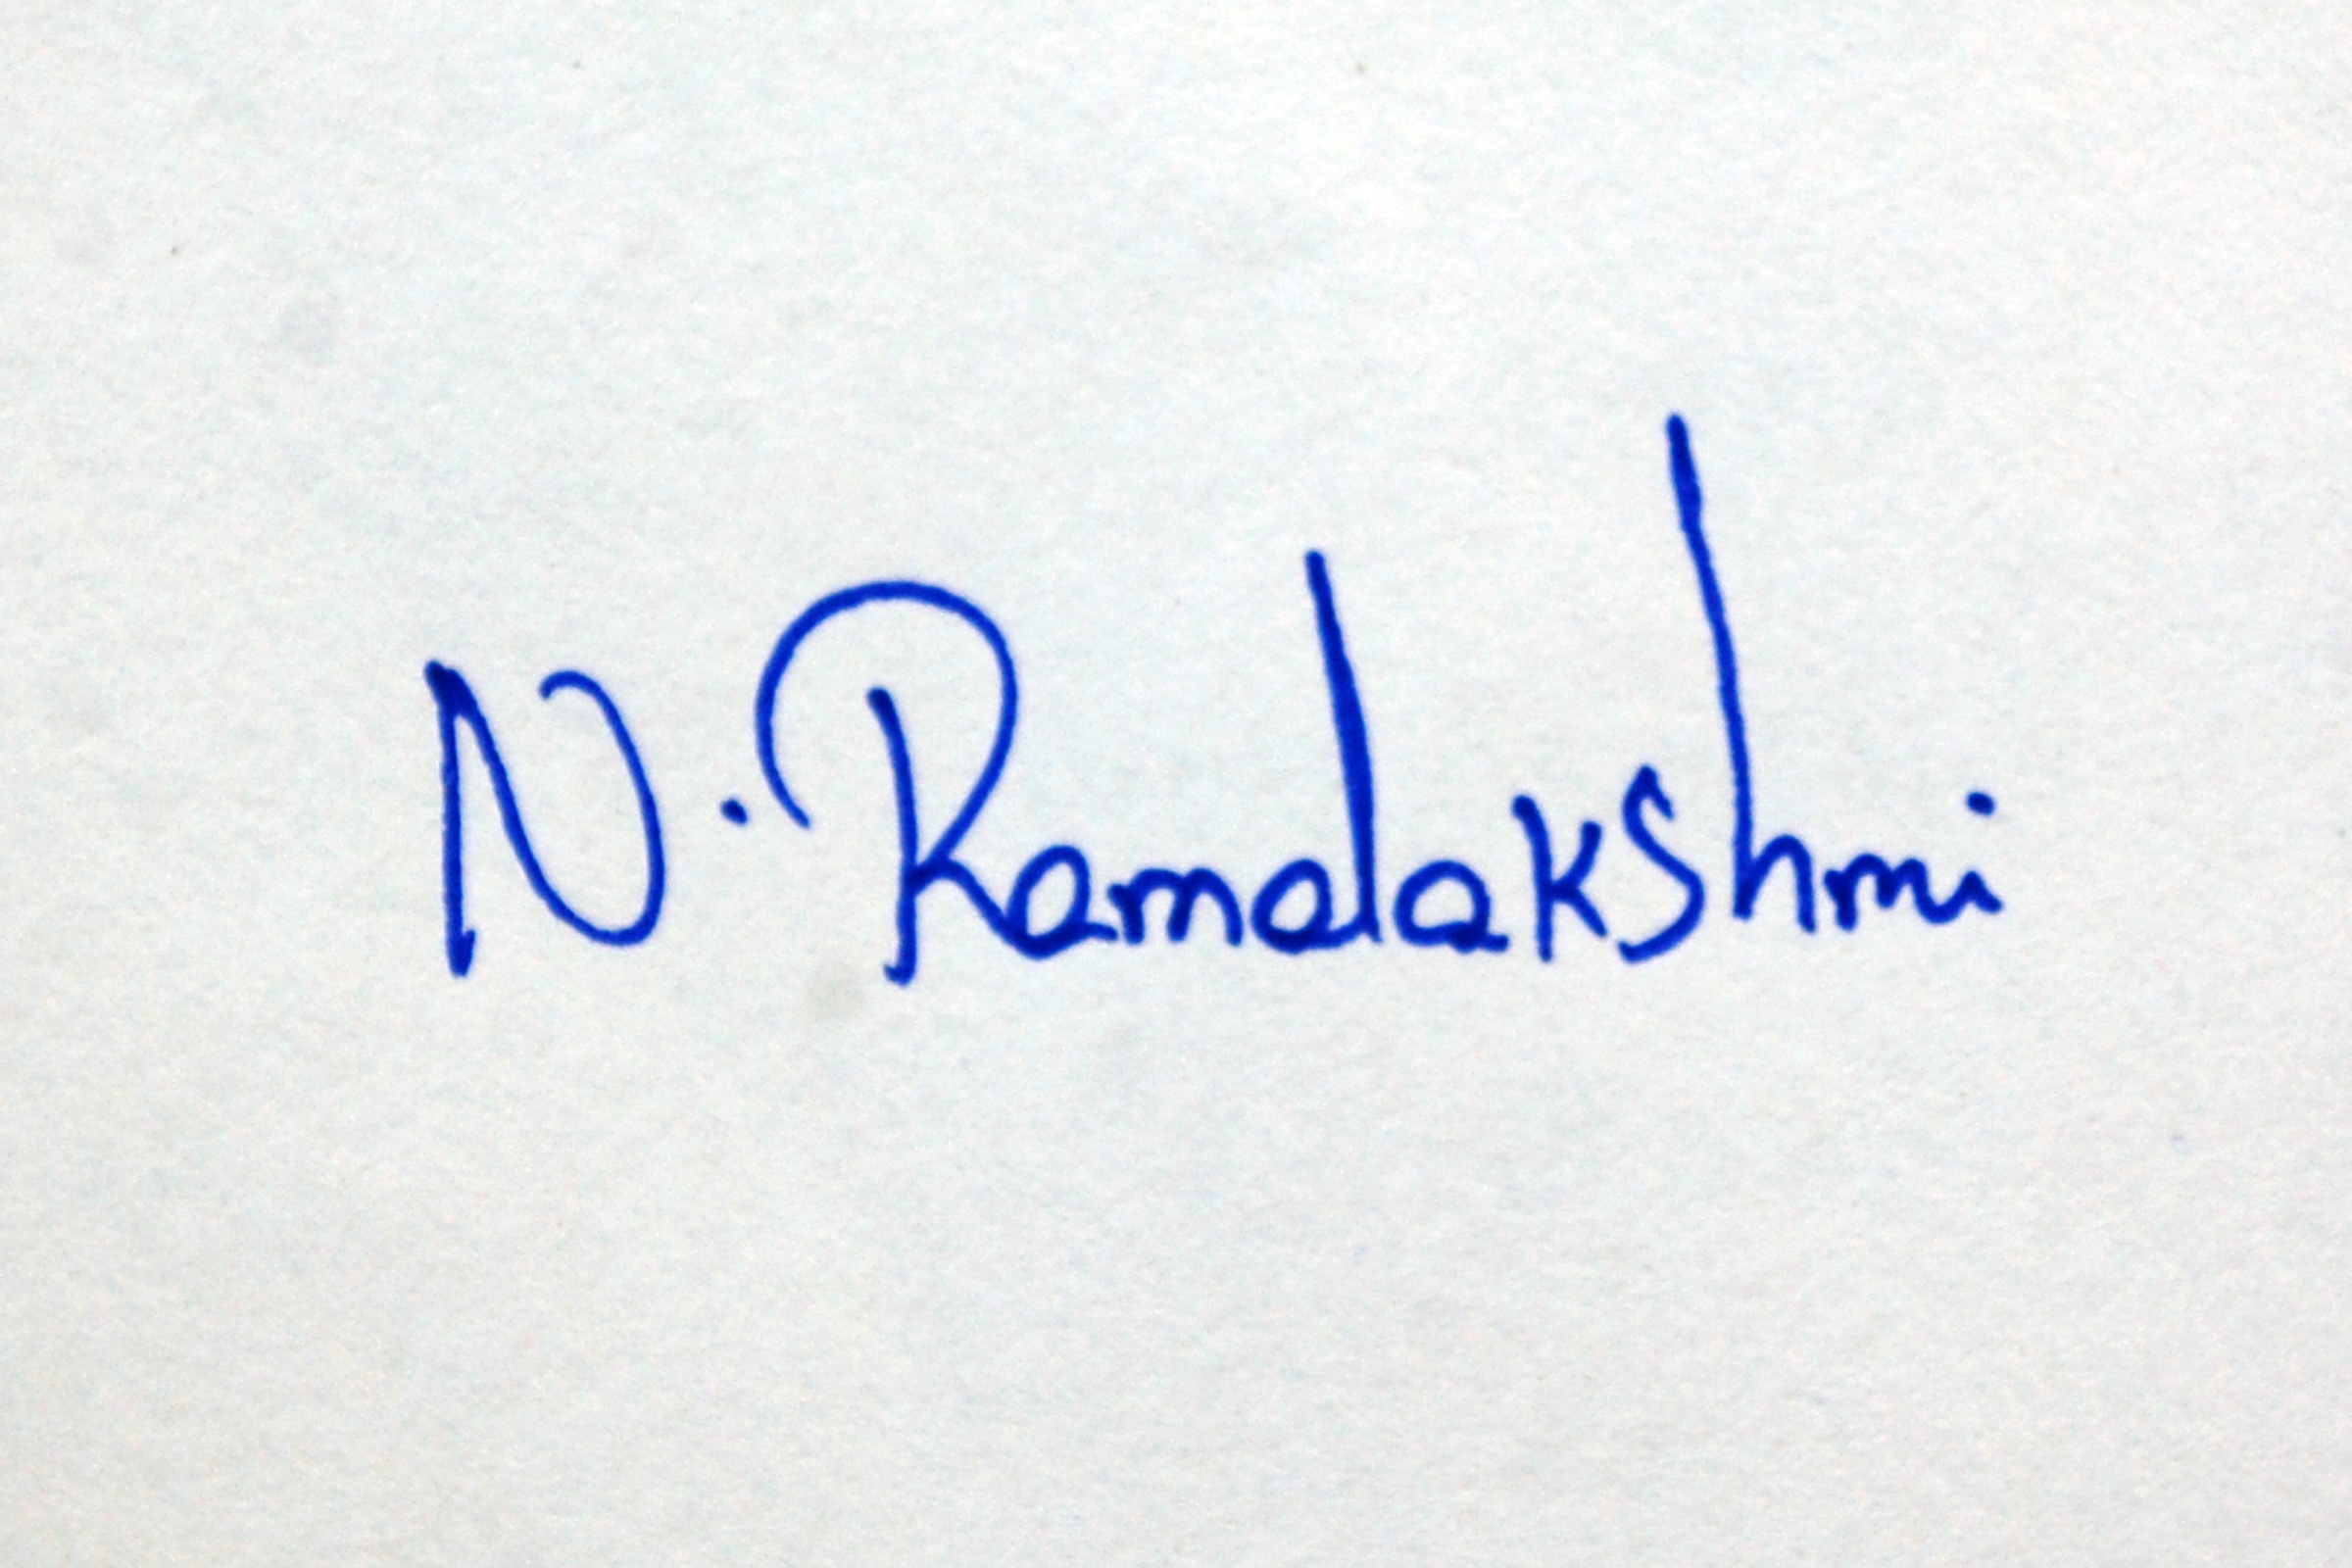 N. Ramalakshmi